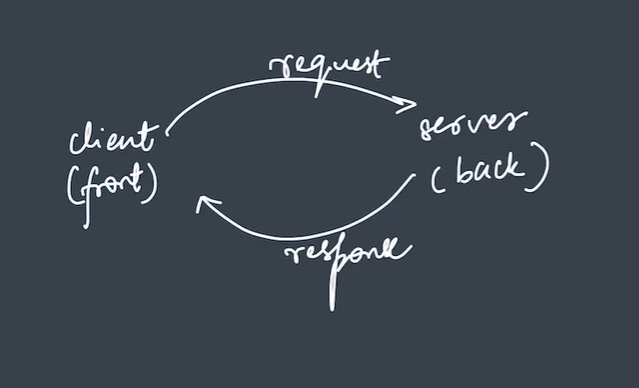 request
client
(front)
server
(back)
response